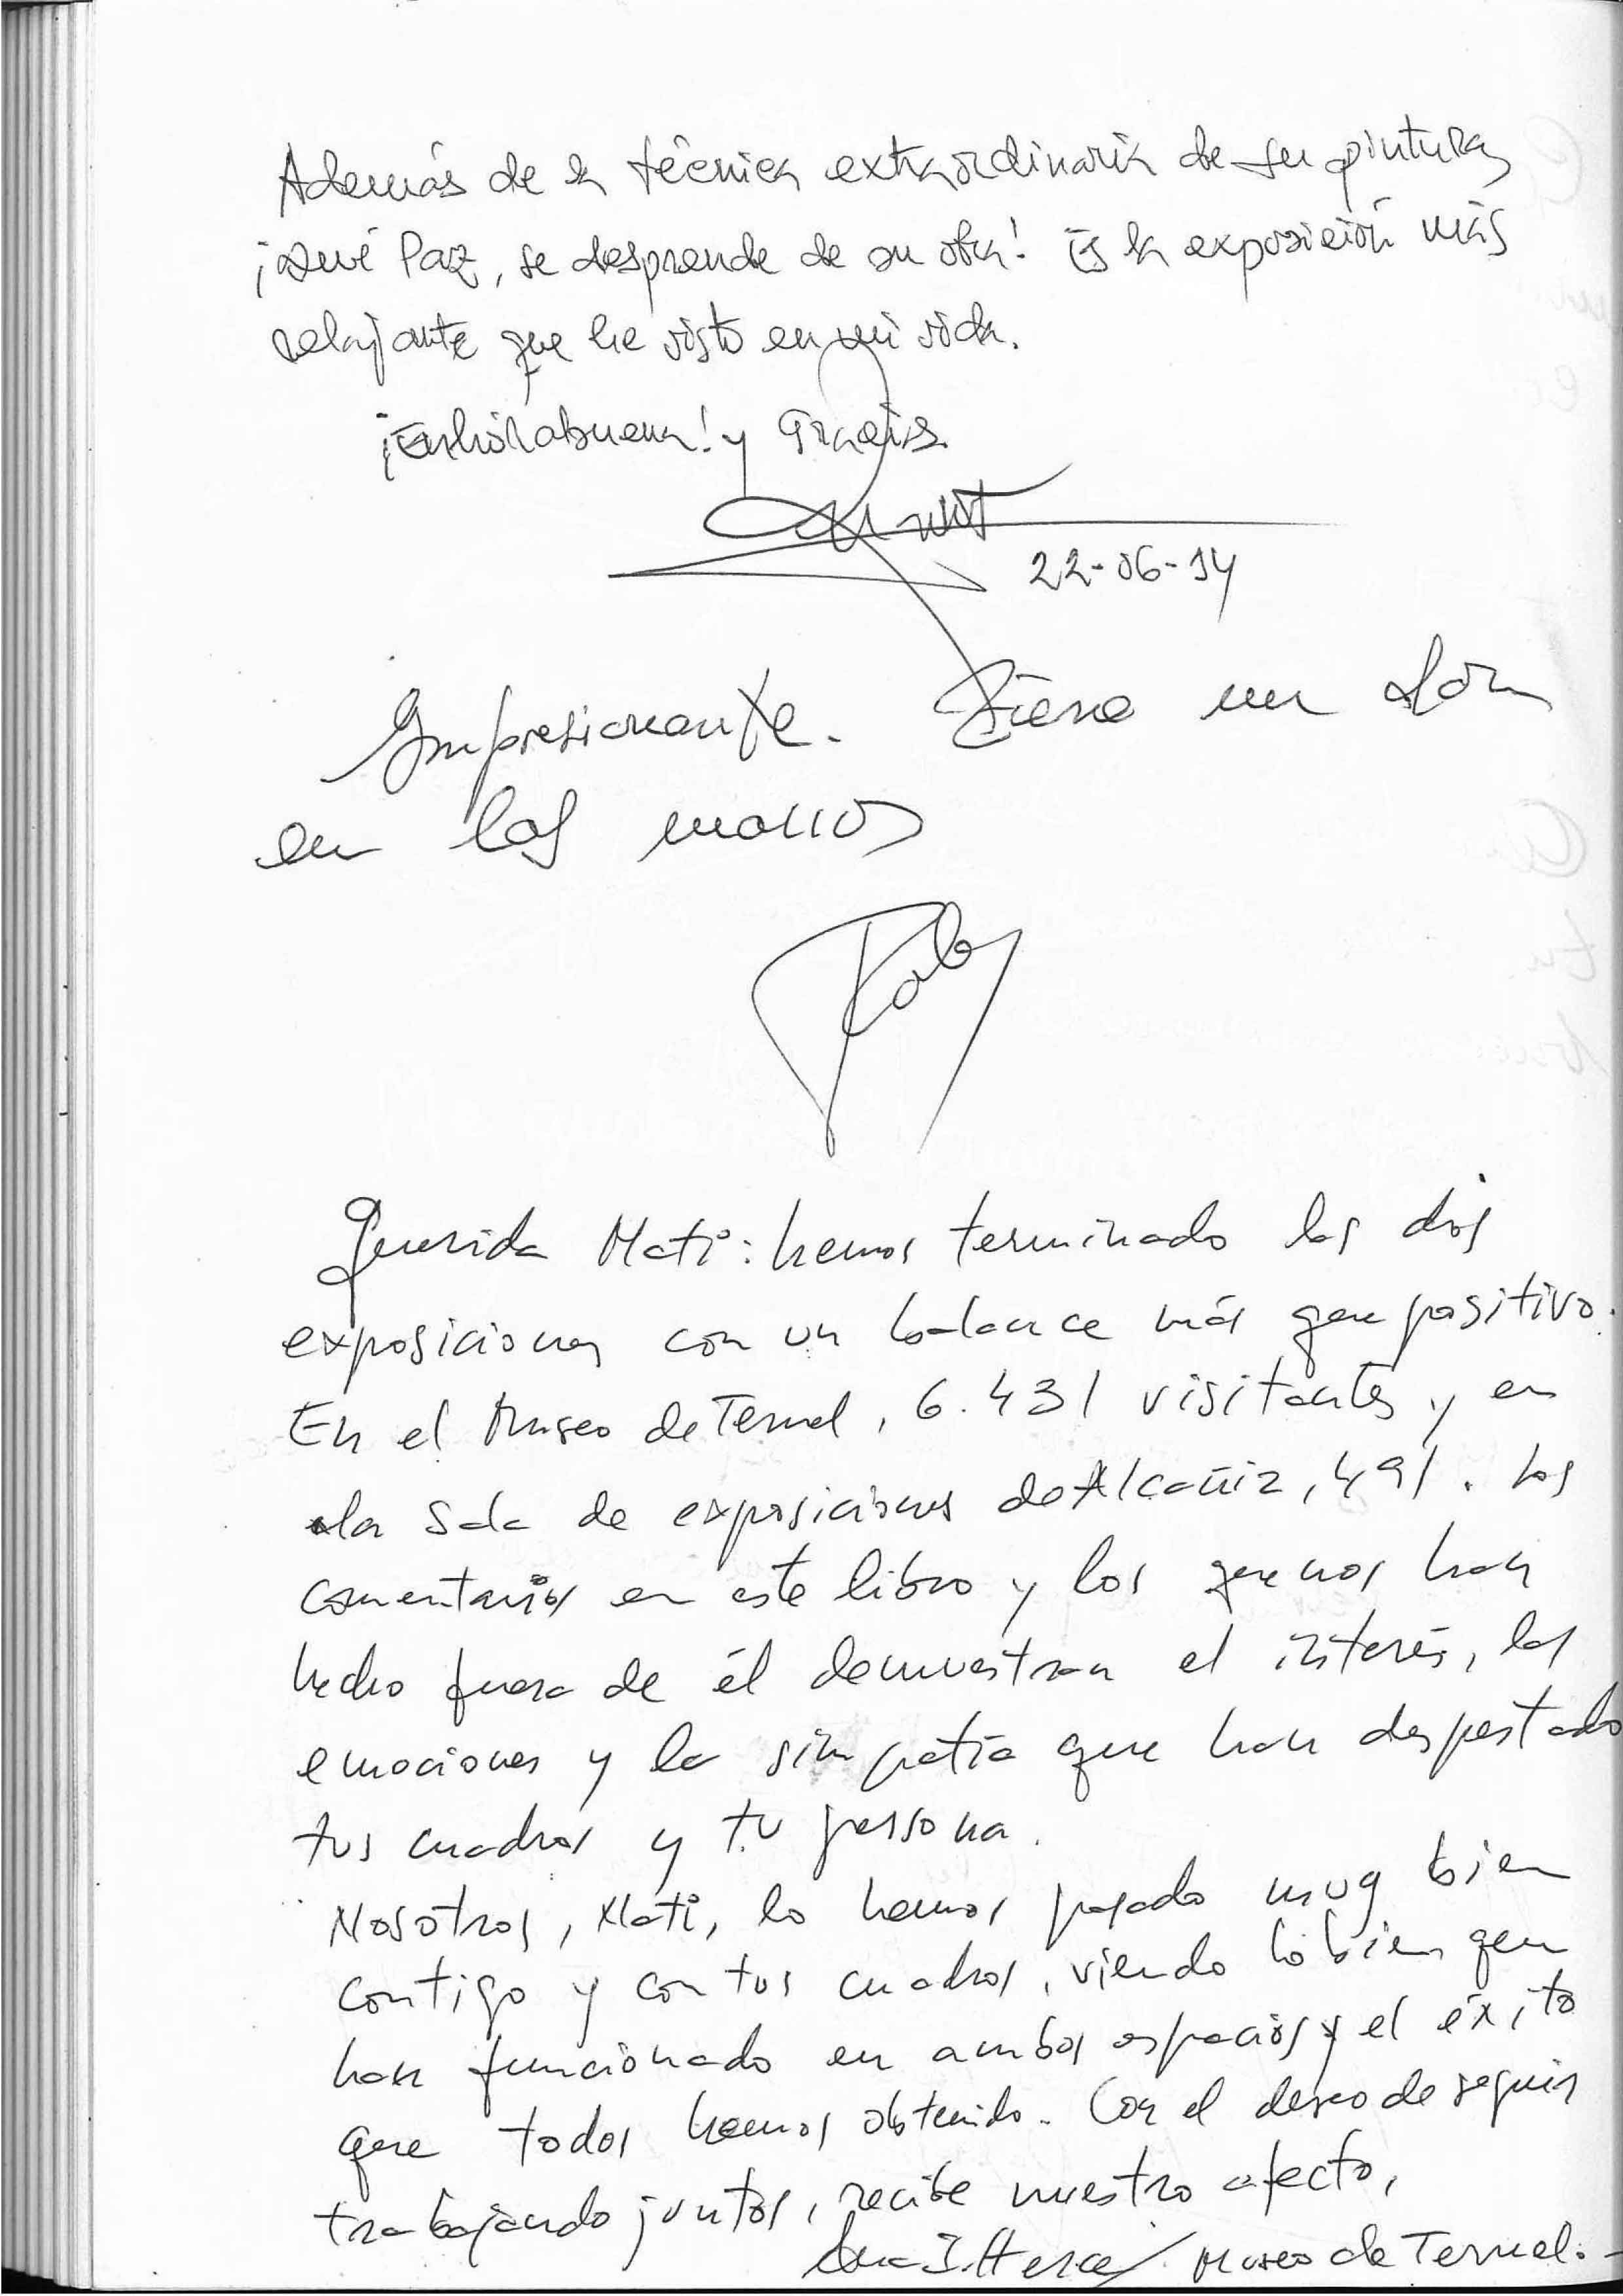 Además de la técnica extraordinaria de su pintura,
¡Qué Paz, se desprende de su obra! Es la exposición más
relajante que he visto en mi vida.
¡Enhorabuena! y Gracias.
22-06-14
Impresionante. Tiene un don
en las manos
Querida Mati: hemos terminado las dos
exposiciones con un balance más que positivo.
En el Museo de Teruel, 6.431 visitantes y en
la Sala de exposiciones de Alcañiz, 491. Los
comentarios en este libro y los que nos han
hecho fuera de él demuestran el interés, las
emociones y la simpatía que han despertado
tus cuadros y tu persona.
Nosotros, Mati, lo hemos pasado muy bien
contigo y con tus cuadros, viendo lo bien que
han funcionado en ambos espacios y el éxito
que todos hemos obtenido. Con el deseo de seguir
trabajando juntos, recibe nuestro afecto,
Museo de Teruel.